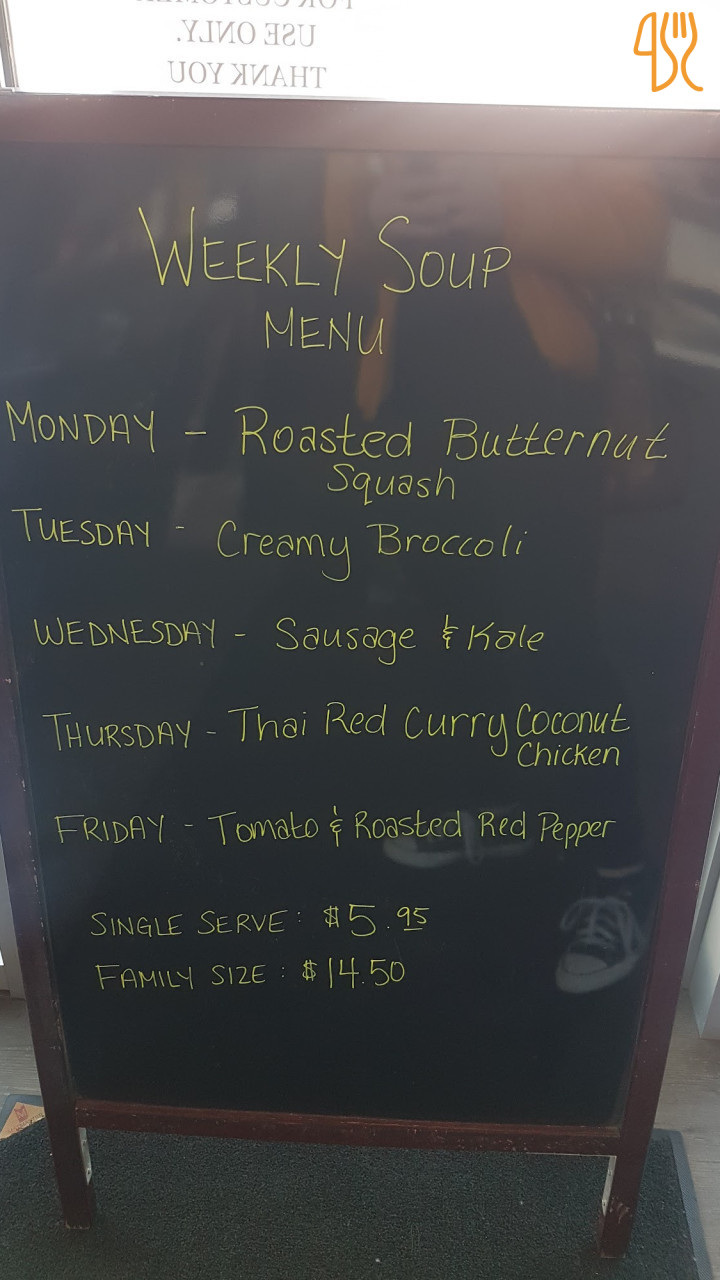 FOR CUSTOMER
USE ONLY.
THANK YOU
WEEKLY SOUP
MENU
MONDAY - Roasted Butternut
Squash
TUESDAY - Creamy Broccoli
WEDNESDAY - Sausage & Kale
THURSDAY - Thai Red Curry Coconut
Chicken
FRIDAY - Tomato & Roasted Red Pepper
SINGLE SERVE: $5.95
FAMILY SIZE: $14.50